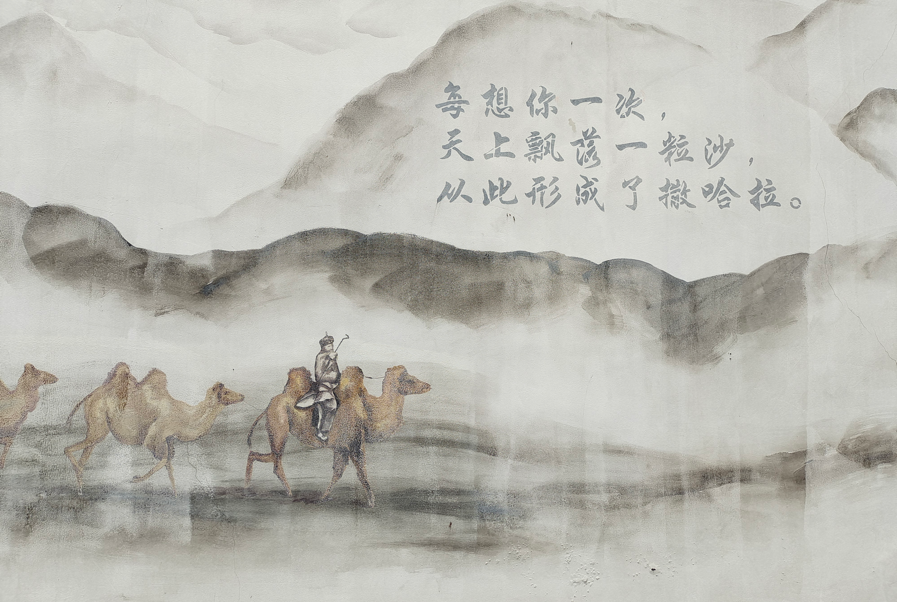 每想你一次，
天上飘落一粒沙，
从此形成了撒哈拉。